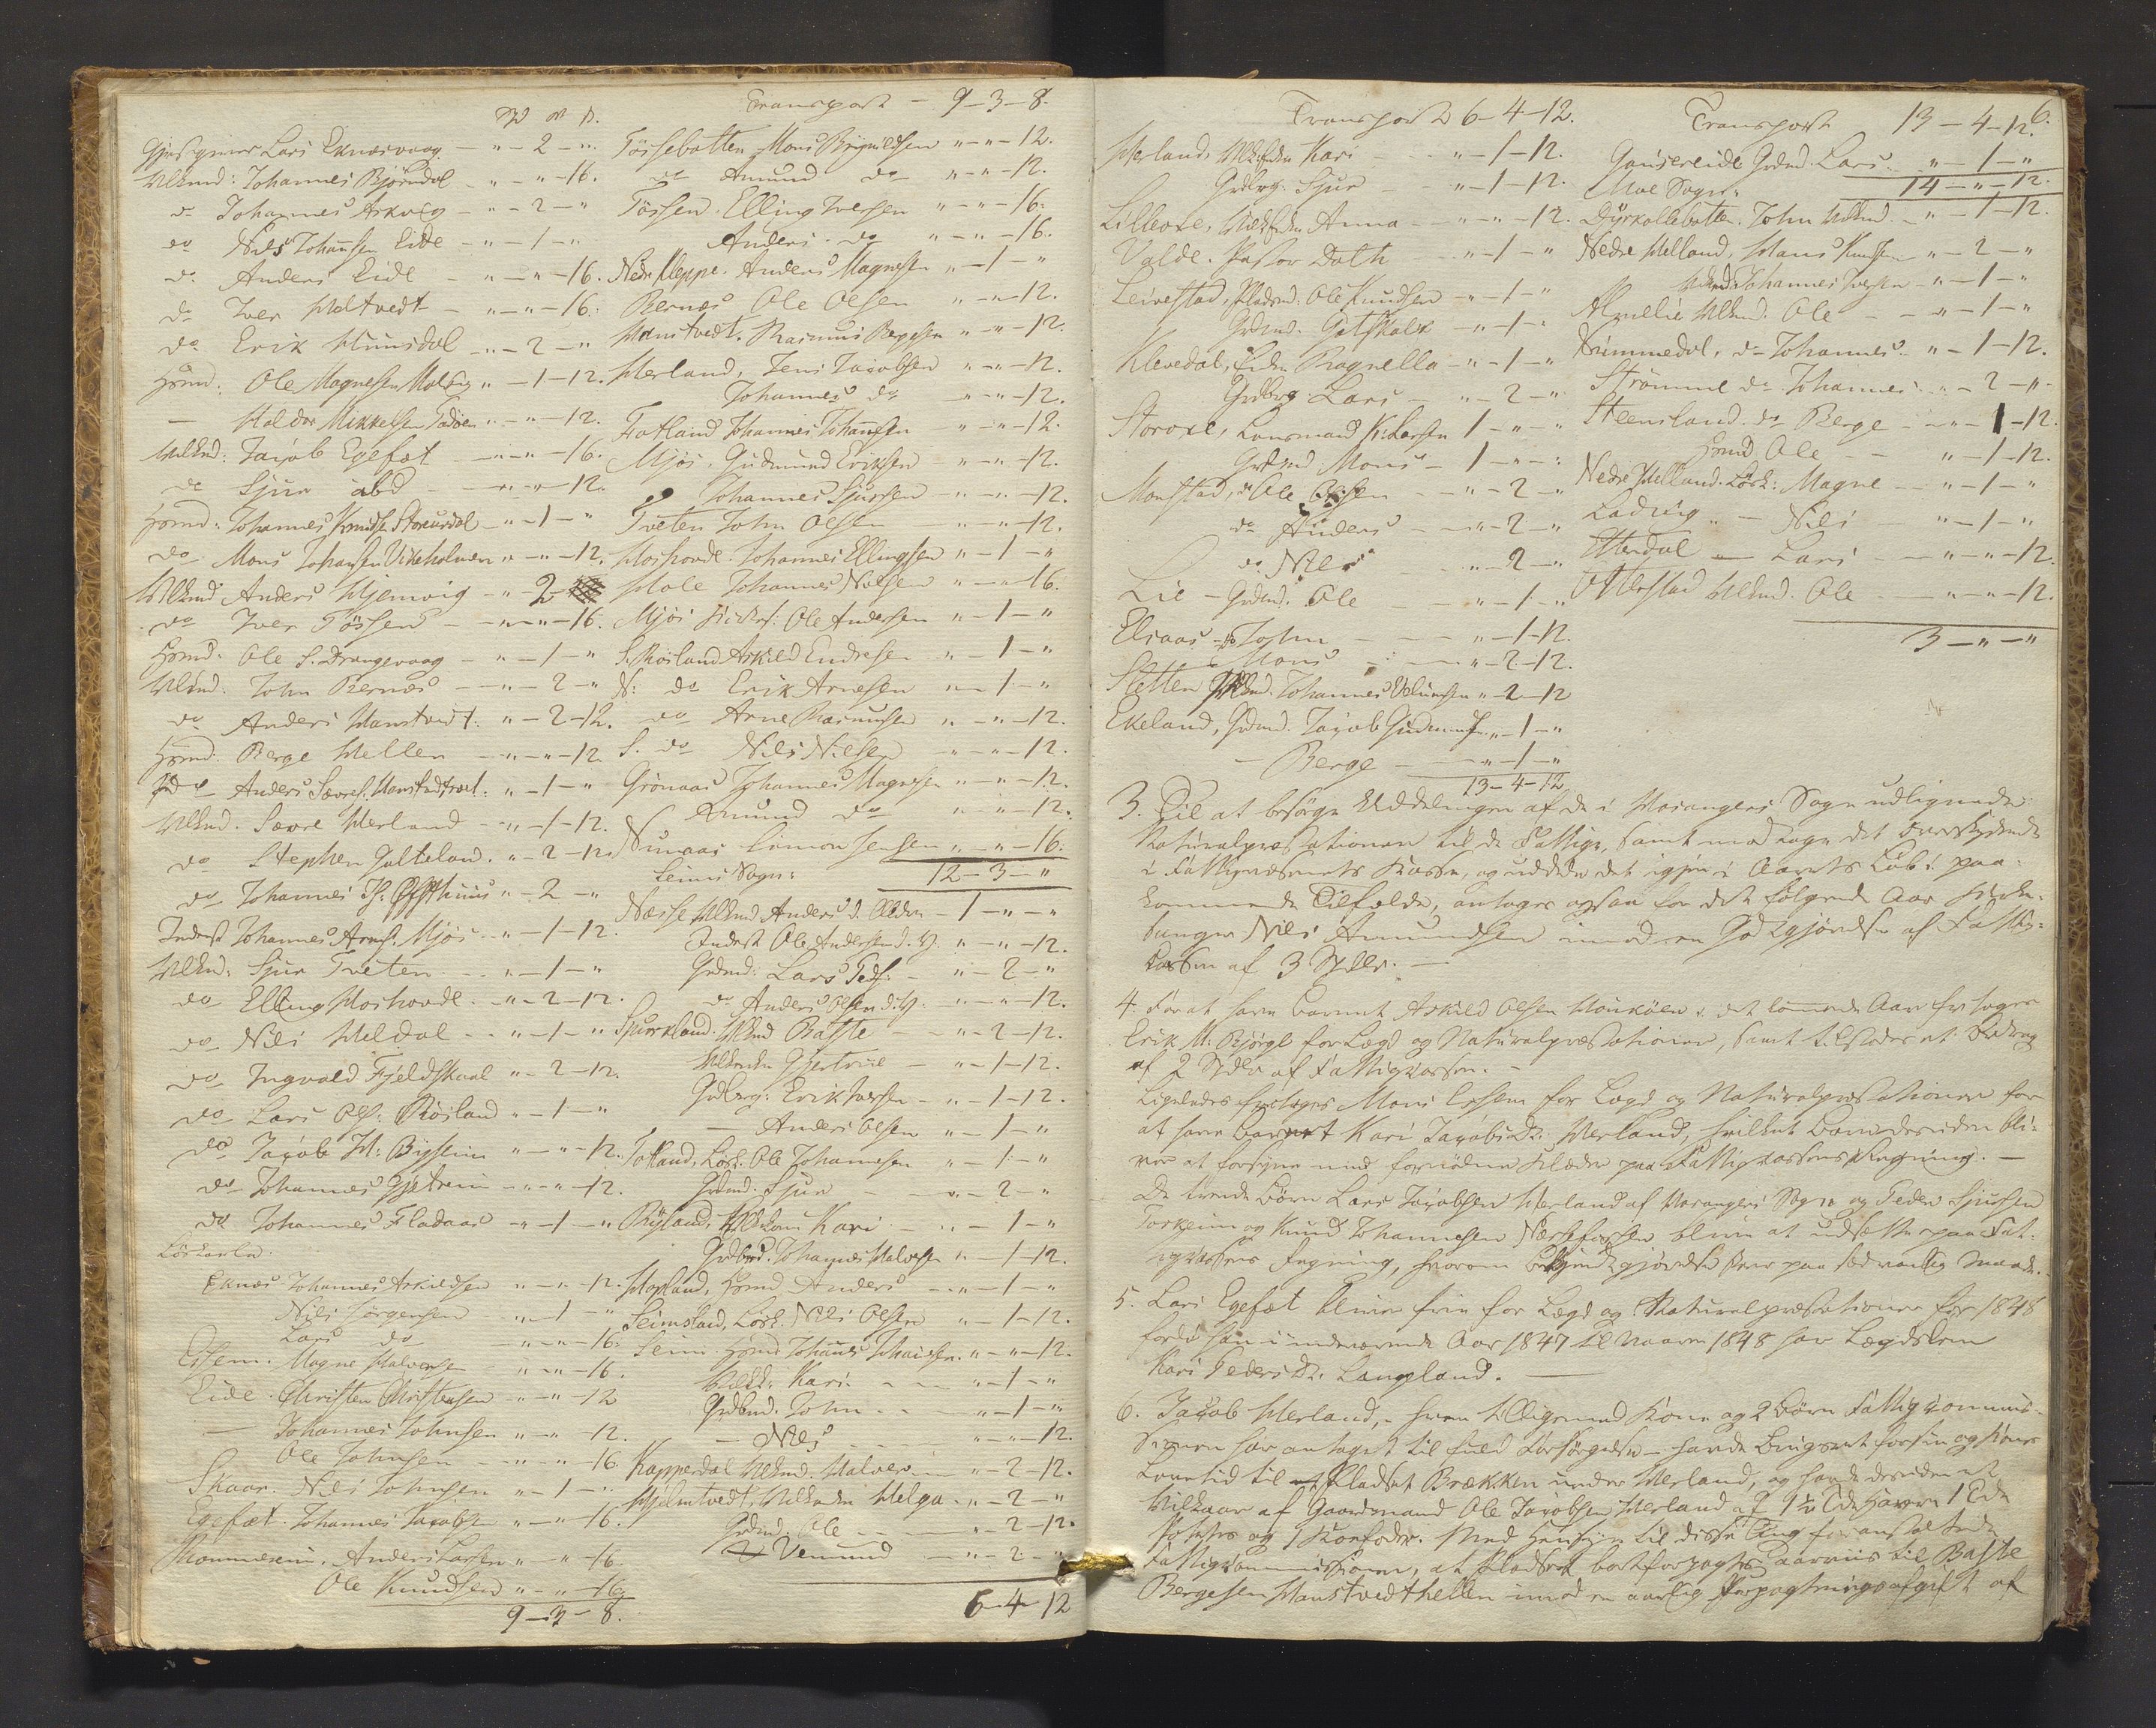 Gjestgiver Lars Eknæsvaag - " - 2 - "
Vilkmd: Johannes Bjørndal - " - " - 16.
do Johannes Askvig - " - 2 - "
do Nils Johansen Eide - " - 1 - "
do Anders Eide - " - " - 16.
do Iver Mæltvedt - " - " - 16.
do Erik Huusdal - " - 2 - "
Hsmd: Ole Magnesen " - 1 - 12.
- Haldor Mikkelsen " - " - 12.
Vilkmd: Jacob Egefæt " - " - 16.
do Sjur ibd " - " - 12.
Hsmd: Johannes Knudsen Storeurdal " - 1 - "
do Mons Johansen Vikeholmen " - " - 12.
Vilkmd Anders Hjemvig " - 2
do Iver Tössen " - " - 16.
Hsmd: Ole S. Drangevaag " - 1 - "
Vilkmd: John Bernæs " - 2 - "
do Anders Manstvedt " - 2 - 12.
Hsmd. Berge Hellen " - " - 12
Anders Sævrs. " - 1 - "
Vilkmd. Sævre Herland " - 1 - 12.
do Stephen Galteland " - 2 - 12
do Johannes " - 2 - "
Inderst Johannes Arnes. Mjøs " - 1 - 12.
Vilkmd: Sjur Tveten " - 1 - "
do Elling Moshovde " - 2 - 12.
do Nils Meldal " - 1 - "
do Ingvald Fjeldskaal " - 2 - 12.
do Lars Ols: Røsland " - 1 - "
do Jacob " - " - 12.
do Johannes " - " - 12.
do Johannes Fladaas " - 1 - "
Löskarle:
Eknæs Johannes Askildsen " - " - 12.
Nils Jörgensen " - 1 - "
Lars do " - " - 16.
Magne Halvorsen " - " - 16.
Eide. Christen Christensen " - " - 12
- Johannes Johnsen " - " - 12.
Ole Johnsen " - " - 16.
Skaar. Nils Johnsen " - 1 - "
Egefæt. Johannes Jacobs. " - " - 16.
Anders Larsen " - " - 16.
Ole Knudsen " - " - 16
9 - 3 - 8.
Transport - 9 - 3 - 8.
Tössebotten Mons Brynildsen " - " - 12.
do Amund do " - " - 12.
Tössen. Elling Iversen " - " - 16.
Anders do " - " - 16.
Nedr. Kleppe. Anders Magnesen " - 1 - "
Bernæs Ole Olsen " - " - 12.
Manstvedt. Rasmus Bergesen " - " - 12.
Herland, Jens Jacobsen " - " - 12.
Johannes do " - " - 12.
Fatland Johannes Johannesen " - " - 12.
Mjös, Gudmund Eriksen " - " - 12.
Johannes Sjursen " - " - 12.
Tveten John Olsen " - " - 12.
Moshovde. Johannes Ellingsen " - 1 - "
Hole Johannes Nilsen " - " - 16.
Mjös Ole Andersen " - 1 - "
S. Røsland Askild Endresen " - 1 - "
N: do Erik Arnesen " - 1 - "
do Arne Rasmussen " - " - 12.
S. do Nils Nilsen " - " - 12.
Grönaas Johannes Magnesen " - " - 12.
Amund do " - " - 12.
Simon Jensen " - " - 16.
12 - 3 - "
Seims Sogn:
Næsse Vilkmd Anders d. Ældre - 1 - " - "
Inderst Ole Andersen d. Y. " - " - 12.
Grdmd: Lars Peds. " - 2 - "
do Anders Olsen d. Y. " - " - 12.
Spurkland. Vilkmd Baste " - 2 - 12.
Gjertrue " - 1 - 12.
Gdbrg: Erik Iversen " - 1 - 12.
- Anders Olsen " - 1 - "
Totland, Lösk. Ole Johannesen " - 1 - "
Grdmd. Sjur " - 2 - "
Ryland, Kari " - 1 - "
Johannes Halvorsen " - 1 - 12.
Hopland, Hsmd Anders " - 1 - "
Seimstad, Lösk. Nils Olsen " - 1 - 12.
Seim. Hsmd Johannes Johannesen " - " - 12.
Kari " - 1 - "
John " - 1 - "
- Nils " - " - 12.
Kopperdal Vilkmd. Halvor " - 2 - 12.
Hjelmtvedt, Helga " - 2 - "
Grdmd. Ole " - 2 - 12.
Vemund " - 2 - "
6 - 4 - 12
Transport 6 - 4 - 12.
Herland, Kari " - 1 - 12.
Gdbrg: Sjur " - 1 - 12.
Lilleoxe, Anna " - " - 12.
Valde. Pastor Dath " - 1 - "
Leivestad, Pladsmd: Ole Knudsen " - 1 - "
Grdmd. Gotskalk " - 1 - "
Klevedal, Enke Ragnella " - 1 - "
Gdbrg Lars " - 2 - "
Storoxe, Lensmand K. Larsen 1 - " - "
Grdmd Mons 1 - " - "
Monstad, do Ole Olsen " - 2 - "
do Anders " - 2 - "
do Nils " - 2 - "
Lie - Grdmd. Ole " - 1 - "
Elsaas do John " - 1 - 12.
Mons " - 2 - 12.
Sletten Vilkmd. Johannes " - 2 - 12
Ekeland, Grdmd. Jacob Gudmunds. " - 1 - "
- Berge " - 1 - "
13 - 4 - 12
6.
Transport 13 - 4 - 12.
Gaustereide Grdmd. Lars " - 1 - "
14 - " - 12.
Moe Sogn:
Dyrkollebotten. John Vilkmd. " - 1 - 12.
Nedre Helland, Hans Knudsen " - 2 - "
Vilkmd: Johannes Iversen " - 1 - "
Almelie Vilkmd. Ole " - 1 - "
Krimmedal, do Johannes " - 1 - 12.
Strömme do Johannes " - 2 - "
Steensland do Berge " - 1 - 12.
Hsmd Ole " - 1 - 12.
Nedre Helland. Lösk: Magne " - 1 - "
Ladvig - Nils " - 1 - "
Otterdal - Lars " - " - 12.
Otterstad Vilkmd. Ole " - " - 12.
3 - " - "
3. Til at besørge Uddelingen af de i Hosangers Sogn udlignede
Naturalpræstationer til de Fattige, samt modtage det overskydende
i Fattigvæsenets Kasse, og uddele det igjen i Aarets Løb i paa-
kommende Tilfælde, antages ogsaa for det følgende Aar Kirke-
sanger Nils Amundsen imod en Godtgjørelse af Fattig-
kassen af 3 Spdlr. -
4. For at have Barnet Askild Olsen i det kommende Aar fritages
Erik M. Bjørge for Lægd og Naturalpræstationer, samt tilstodes et Bidrag
af 2 Spdlr af Fattigkassen. -
Ligeledes fritages Mons Elsaas for Lægd og Naturalpræstationer for
at have Barnet Kari Jacobsdr. Herland, hvilket Barn desuden bli-
ver at forsyne med fornødne Klæder paa Fattigkassens Regning. -
De trende Børn Lars Jacobsen Herland af Hosangers Sogn og Peder Sjursen
Torkeim og Knud Johannesen Næssefossen blive at udsætte paa Fat-
tigkassens Regning, hvorom Bekjendtgjørelse skeer paa sædvanlig Maade.
5. Lars Egefæt bliver frie for Lægd og Naturalpræstationer for 1848
fordi han i indeværende Aar 1847 til Vaaren 1848 har Lægdslem
Kari Pedersdr. Langeland. -
6. Jacob Herland, - hvem tilligemed Kone og 2 Børn Fattigkommis-
sionen har antaget til fuld Forsørgelse - havde Brugsret for sin og Kones
Levetid til Pladset Brækken under Herland, og havde desuden et
Vilkaar af Gaardmand Ole Jacobsen Herland af 1½ Tde Havre 1 Tde
Potetes og 1 Koefoder. Med Hensyn til disse Ting foranstaltede
Fattigkommissionen, at Pladset bortforpagtes aarviis til Baste
Bergesen Manstvedthellen imod en aarlig Forpagtningsafgift af